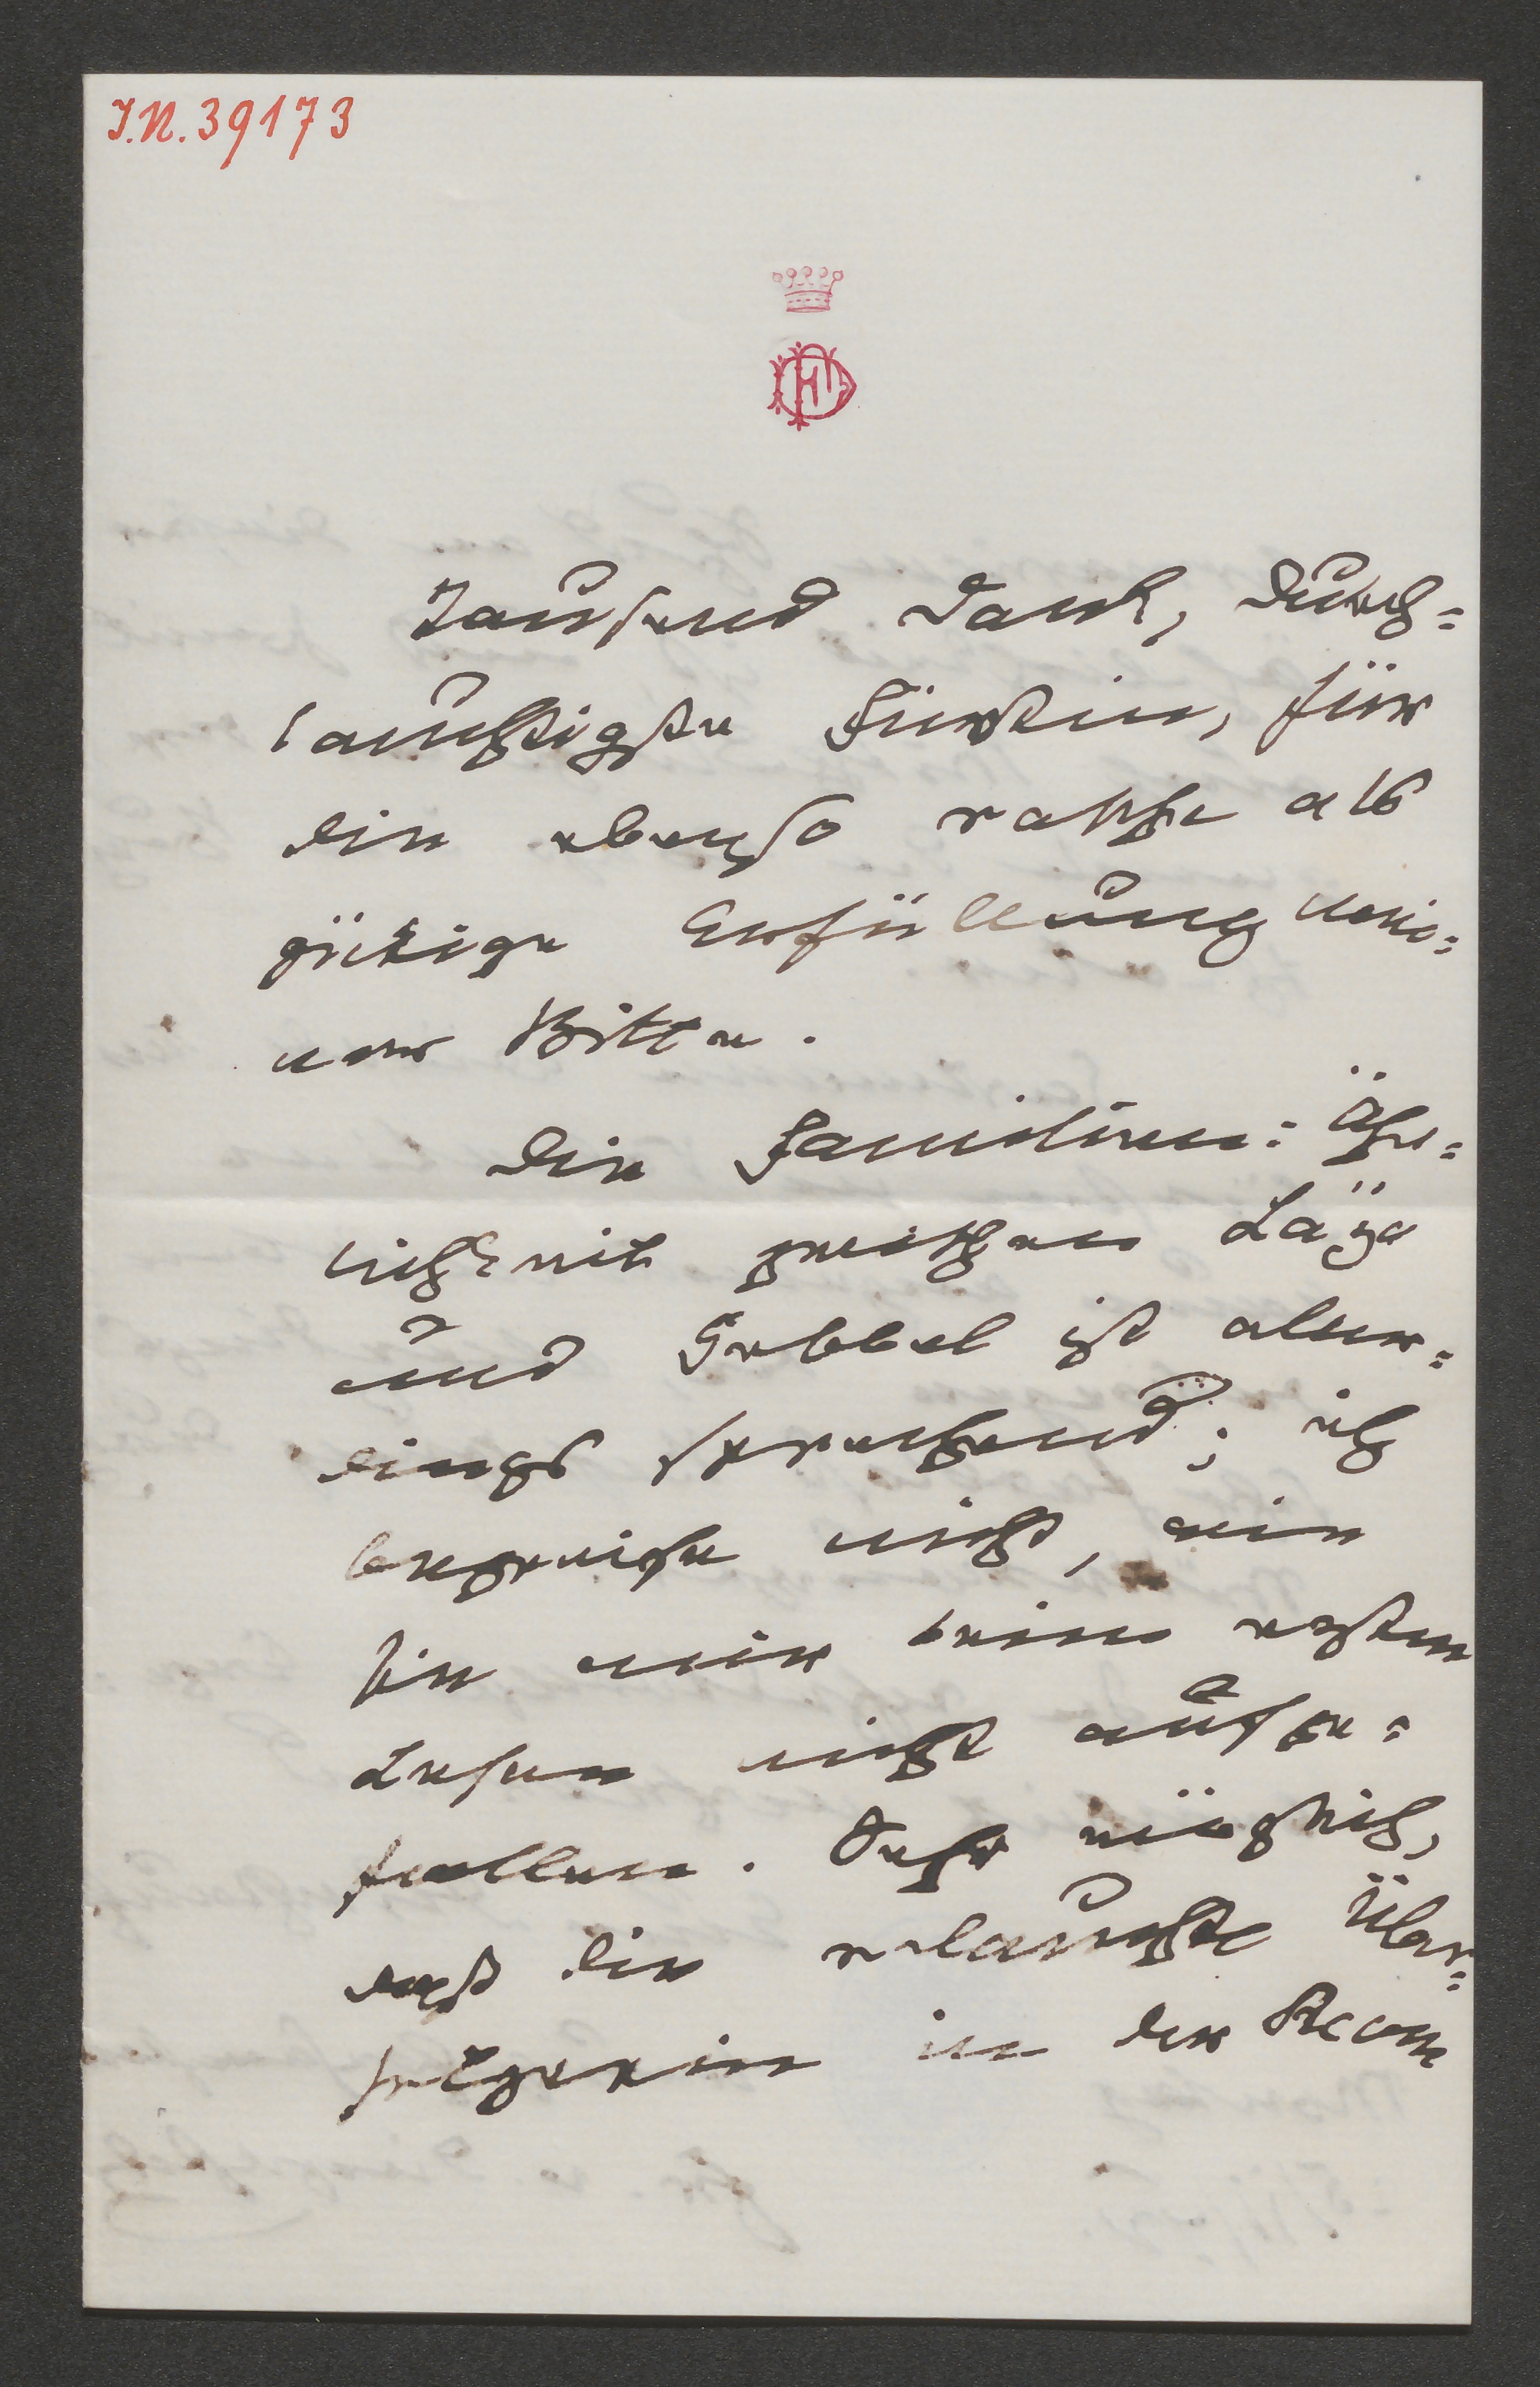 I.N. 39173
Tausend Dank, durch=
lauchtigste Fürstin, für
die ebenso rasche als
gütige Erfüllung mei=
ner Bitte.
Die Familien=Ähn=
lichkeit zwischen Läza
und Hebbel ist aller=
dings sprechend; ich
begreife nicht, wie
sie mir beim ersten
Lesen nicht aufge=
fallen. Sehr möglich,
daß die erlauchte Über=
setzerin in der